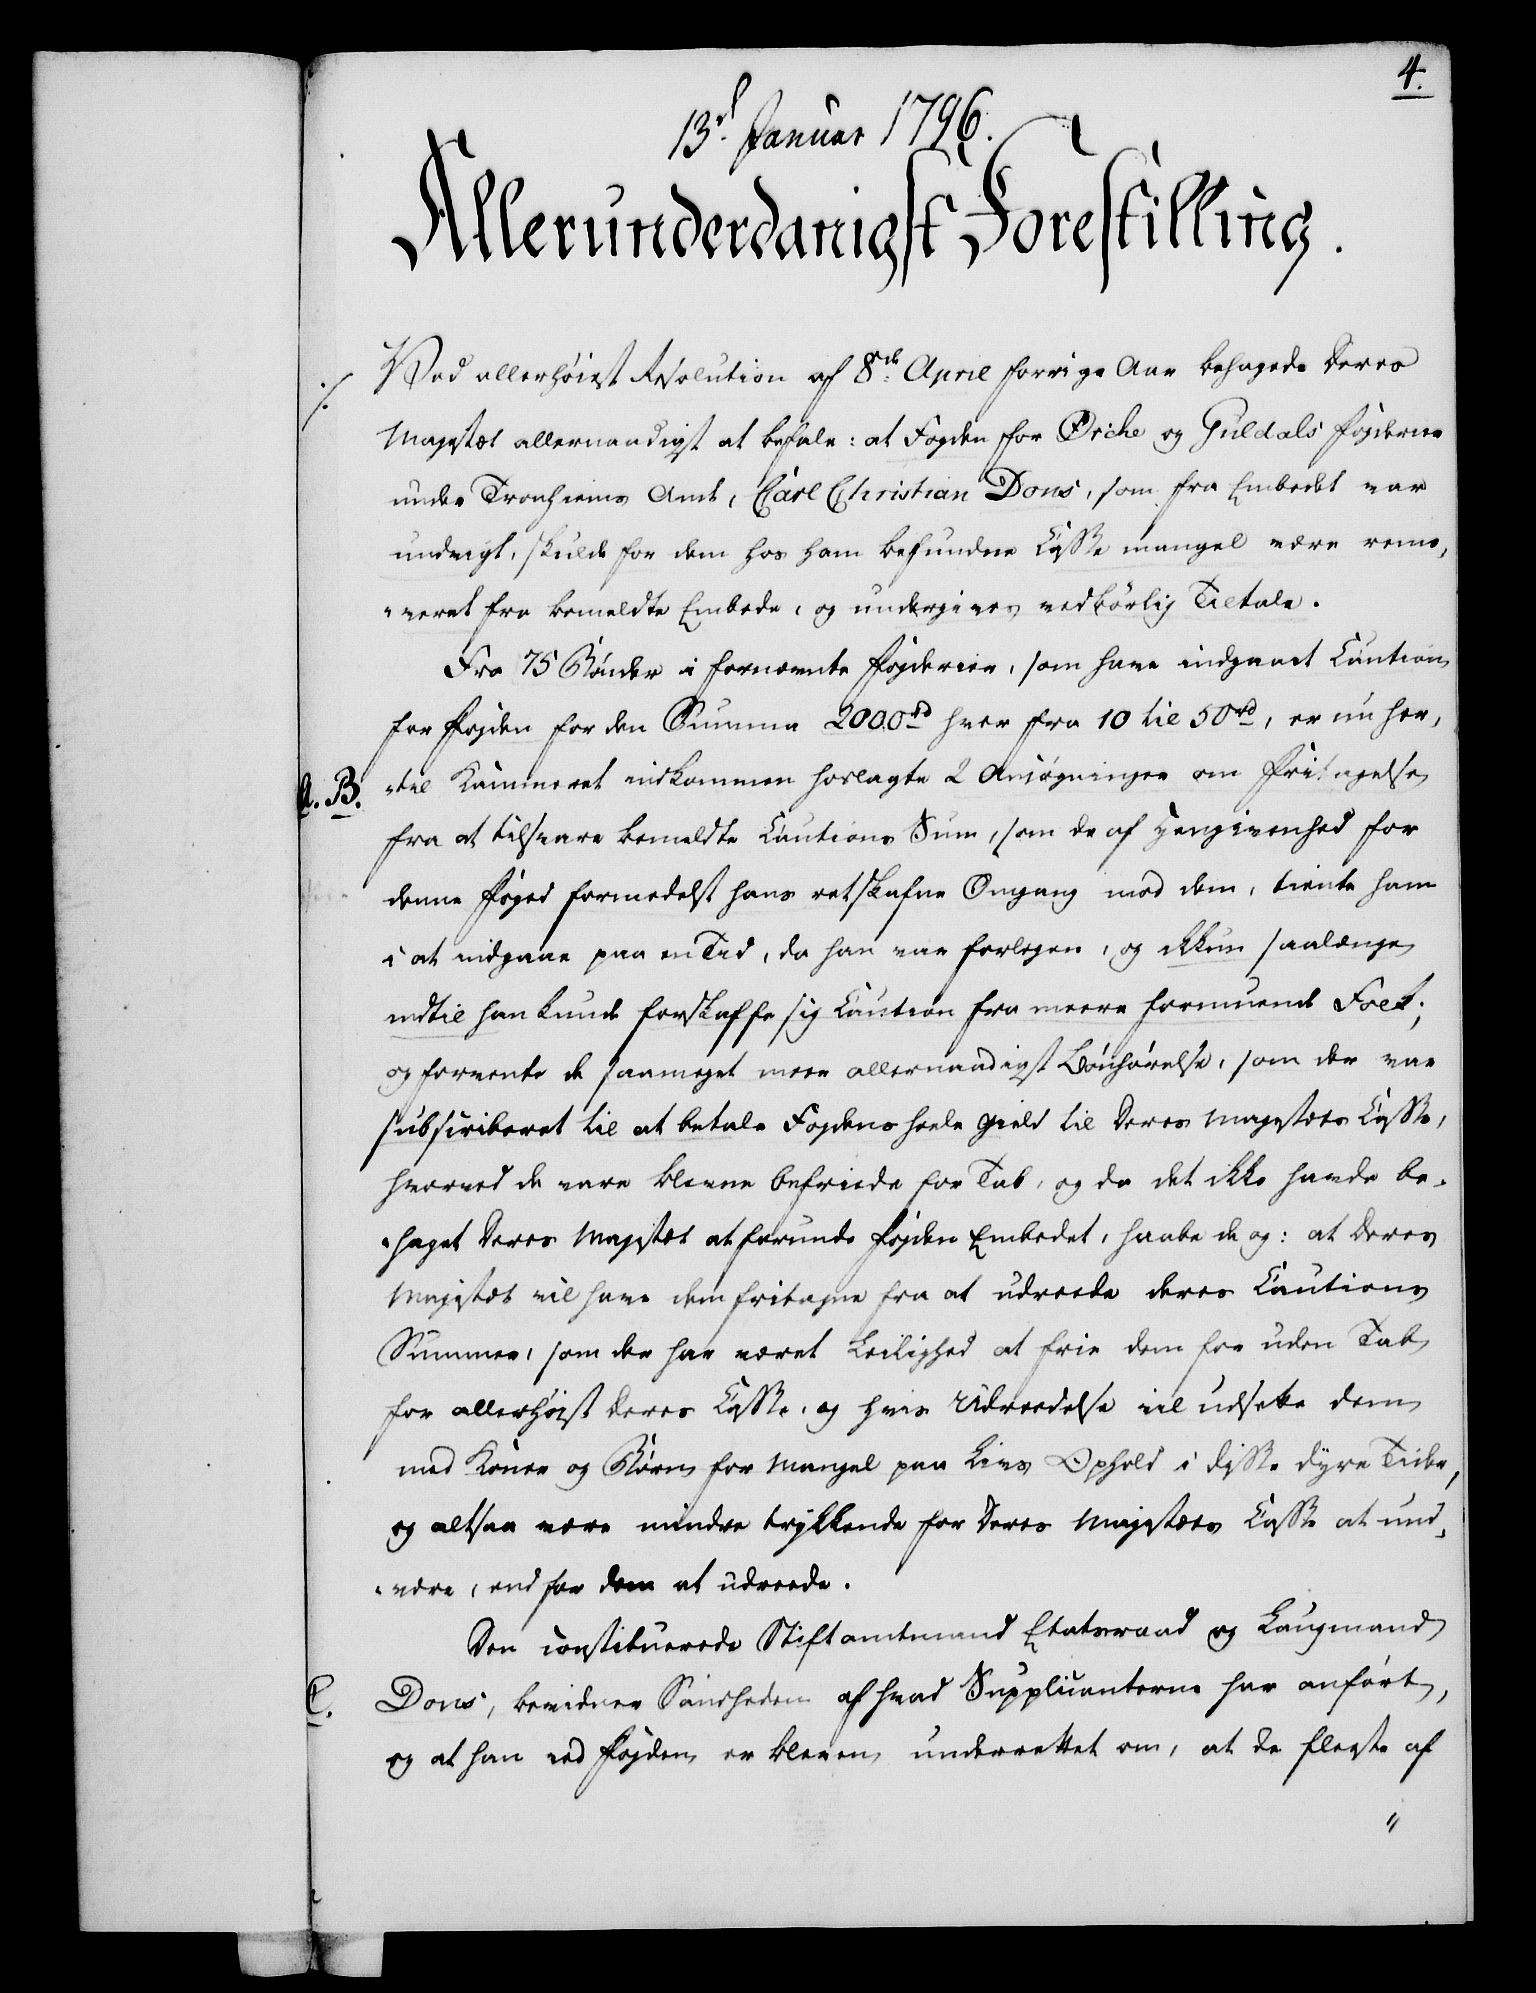 4.
13d Januar 1796.
Allerunderdanigst Forestilling.
./. Ved allerhöiest Resolution af 8de April forrige Aar behagede Deres
Majestæt allernaadigst at befale: at Fogden for Örche og Guldals fögderier
under Tronhiems Amt, Carl Christian Dons, som fra Embedet var
undvigt, skulde for dem hos ham befundne Casse mangel være remo,
„veret fra bemeldte Embede, og undergives vedbörlig Tiltale.
Fra 75 Bönder i fornævnte fögderier, som have indgaaet Caution
for fogden for den Summa 2000rd hver fra 10 til 50rd, er nu her,
A. B. „til Kammeret indkommen hoslagte 2 Ansögninger om fritagelse
fra at tilsvare bemeldte Cautions Sum, som de af Hengivenhed for
denne foged formedelst hans retskafne Omgang med dem, tiente ham
i at indgaae paa en Tid, da han var forlegen, og ikkun saalænge
indtil han kunde forskaffe sig Caution fra meere formuende Folk;
og forvente de saameget meer allernaadigst Bönhörelse, som der var
subscriberet til at betale Fogdens heele Gield til Deres Majestæts Casse,
hvorved de vare blevne befriede for Tab, og da det ikke havde be„
„haget Deres Majestæt at forunde fogden Embedet, haabe de og: at Deres
Majestæt vil have dem fritagne fra at udreede deres Cautions
Summer, som der har været Leilighed at frie dem for uden Tab
for allerhöist Deres Casse, og hvis Udreedelse vil udsette dem
med Koner og Börn for Mangel paa Livs Ophold i disse dyre Tider,
og altsaa være mindre trykkende for Deres Majestæts Casse at und„
„være, end for dem at udreede.
Den constituerede Stiftamtmand Etatsraad og Laugmand
C. Dons, bevidner Sandheden af hvad Supplicanterne har anfört,
og at han ved fogden er bleven underrettet om, at de fleeste af
"